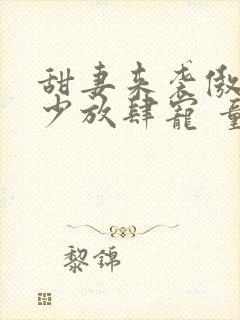 甜妻来袭傲
少放肆宠
黎锦